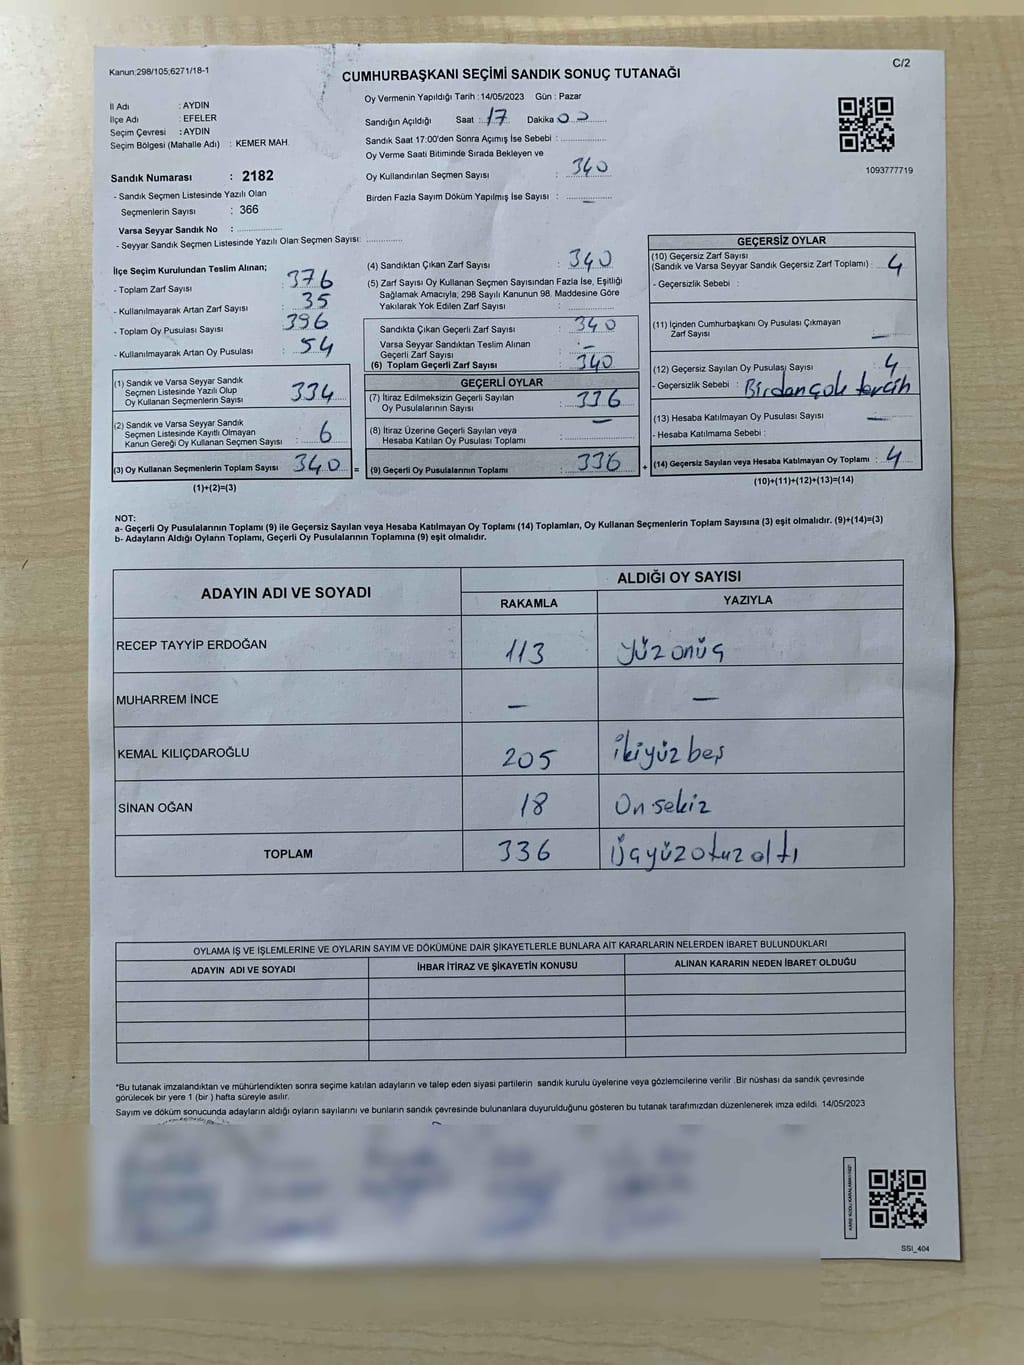 Kanun:298/105;6271/18-1
C/2
CUMHURBAŞKANI SEÇİMİ SANDIK SONUÇ TUTANAĞI
Oy Vermenin Yapıldığı Tarih : 14/05/2023 Gün : Pazar
İl Adı : AYDIN
İlçe Adı : EFELER
Seçim Çevresi : AYDIN
Seçim Bölgesi (Mahalle Adı) : KEMER MAH.
Sandığın Açıldığı Saat : 17 Dakika 00
Sandık Saat 17:00'den Sonra Açımış İse Sebebi :
Oy Verme Saati Bitiminde Sırada Bekleyen ve
Oy Kullandırılan Seçmen Sayısı : 340
Birden Fazla Sayım Döküm Yapılmış İse Sayısı : —
1093777719
Sandık Numarası : 2182
- Sandık Seçmen Listesinde Yazılı Olan
Seçmenlerin Sayısı : 366
Varsa Seyyar Sandık No :
- Seyyar Sandık Seçmen Listesinde Yazılı Olan Seçmen Sayısı:
İlçe Seçim Kurulundan Teslim Alınan;
- Toplam Zarf Sayısı : 376
- Kullanılmayarak Artan Zarf Sayısı : 35
- Toplam Oy Pusulası Sayısı : 396
- Kullanılmayarak Artan Oy Pusulası : 54
(1) Sandık ve Varsa Seyyar Sandık
Seçmen Listesinde Yazılı Olup
Oy Kullanan Seçmenlerin Sayısı : 334
(2) Sandık ve Varsa Seyyar Sandık
Seçmen Listesinde Kayıtlı Olmayan
Kanun Gereği Oy Kullanan Seçmen Sayısı : 6
(3) Oy Kullanan Seçmenlerin Toplam Sayısı 340 =
(1)+(2)=(3)
(4) Sandıktan Çıkan Zarf Sayısı : 340
(5) Zarf Sayısı Oy Kullanan Seçmen Sayısından Fazla İse, Eşitliği
Sağlamak Amacıyla; 298 Sayılı Kanunun 98. Maddesine Göre
Yakılarak Yok Edilen Zarf Sayısı :
Sandıkta Çıkan Geçerli Zarf Sayısı : 340
Varsa Seyyar Sandıktan Teslim Alınan
Geçerli Zarf Sayısı : —
(6) Toplam Geçerli Zarf Sayısı : 340
GEÇERLİ OYLAR
(7) İtiraz Edilmeksizin Geçerli Sayılan
Oy Pusulalarının Sayısı : 336
(8) İtiraz Üzerine Geçerli Sayılan veya
Hesaba Katılan Oy Pusulası Toplamı : —
(9) Geçerli Oy Pusulalarının Toplamı : 336 +
GEÇERSİZ OYLAR
(10) Geçersiz Zarf Sayısı
(Sandık ve Varsa Seyyar Sandık Geçersiz Zarf Toplamı) : 4
- Geçersizlik Sebebi :
(11) İçinden Cumhurbaşkanı Oy Pusulası Çıkmayan
Zarf Sayısı : —
(12) Geçersiz Sayılan Oy Pusulası Sayısı : 4
- Geçersizlik Sebebi : Birden çok tercih
(13) Hesaba Katılmayan Oy Pusulası Sayısı : —
- Hesaba Katılmama Sebebi :
(14) Geçersiz Sayılan veya Hesaba Katılmayan Oy Toplamı : 4
(10)+(11)+(12)+(13)=(14)
NOT:
a- Geçerli Oy Pusulalarının Toplamı (9) ile Geçersiz Sayılan veya Hesaba Katılmayan Oy Toplamı (14) Toplamları, Oy Kullanan Seçmenlerin Toplam Sayısına (3) eşit olmalıdır. (9)+(14)=(3)
b- Adayların Aldığı Oyların Toplamı, Geçerli Oy Pusulalarının Toplamına (9) eşit olmalıdır.
ADAYIN ADI VE SOYADI
ALDIĞI OY SAYISI
RAKAMLA YAZIYLA
RECEP TAYYİP ERDOĞAN 113 Yüz onüç
MUHARREM İNCE — —
KEMAL KILIÇDAROĞLU 205 ikiyüz beş
SİNAN OĞAN 18 On sekiz
TOPLAM 336 Üçyüz otuz altı
OYLAMA İŞ VE İŞLEMLERİNE VE OYLARIN SAYIM VE DÖKÜMÜNE DAİR ŞİKAYETLERLE BUNLARA AİT KARARLARIN NELERDEN İBARET BULUNDUKLARI
ADAYIN ADI VE SOYADI İHBAR İTİRAZ VE ŞİKAYETİN KONUSU ALINAN KARARIN NEDEN İBARET OLDUĞU
*Bu tutanak imzalandıktan ve mühürlendikten sonra seçime katılan adayların ve talep eden siyasi partilerin sandık kurulu üyelerine veya gözlemcilerine verilir .Bir nüshası da sandık çevresinde
görülecek bir yere 1 (bir ) hafta süreyle asılır.
Sayım ve döküm sonucunda adayların aldığı oyların sayılarını ve bunların sandık çevresinde bulunanlara duyurulduğunu gösteren bu tutanak tarafımızdan düzenlenerek imza edildi. 14/05/2023
SSI_404